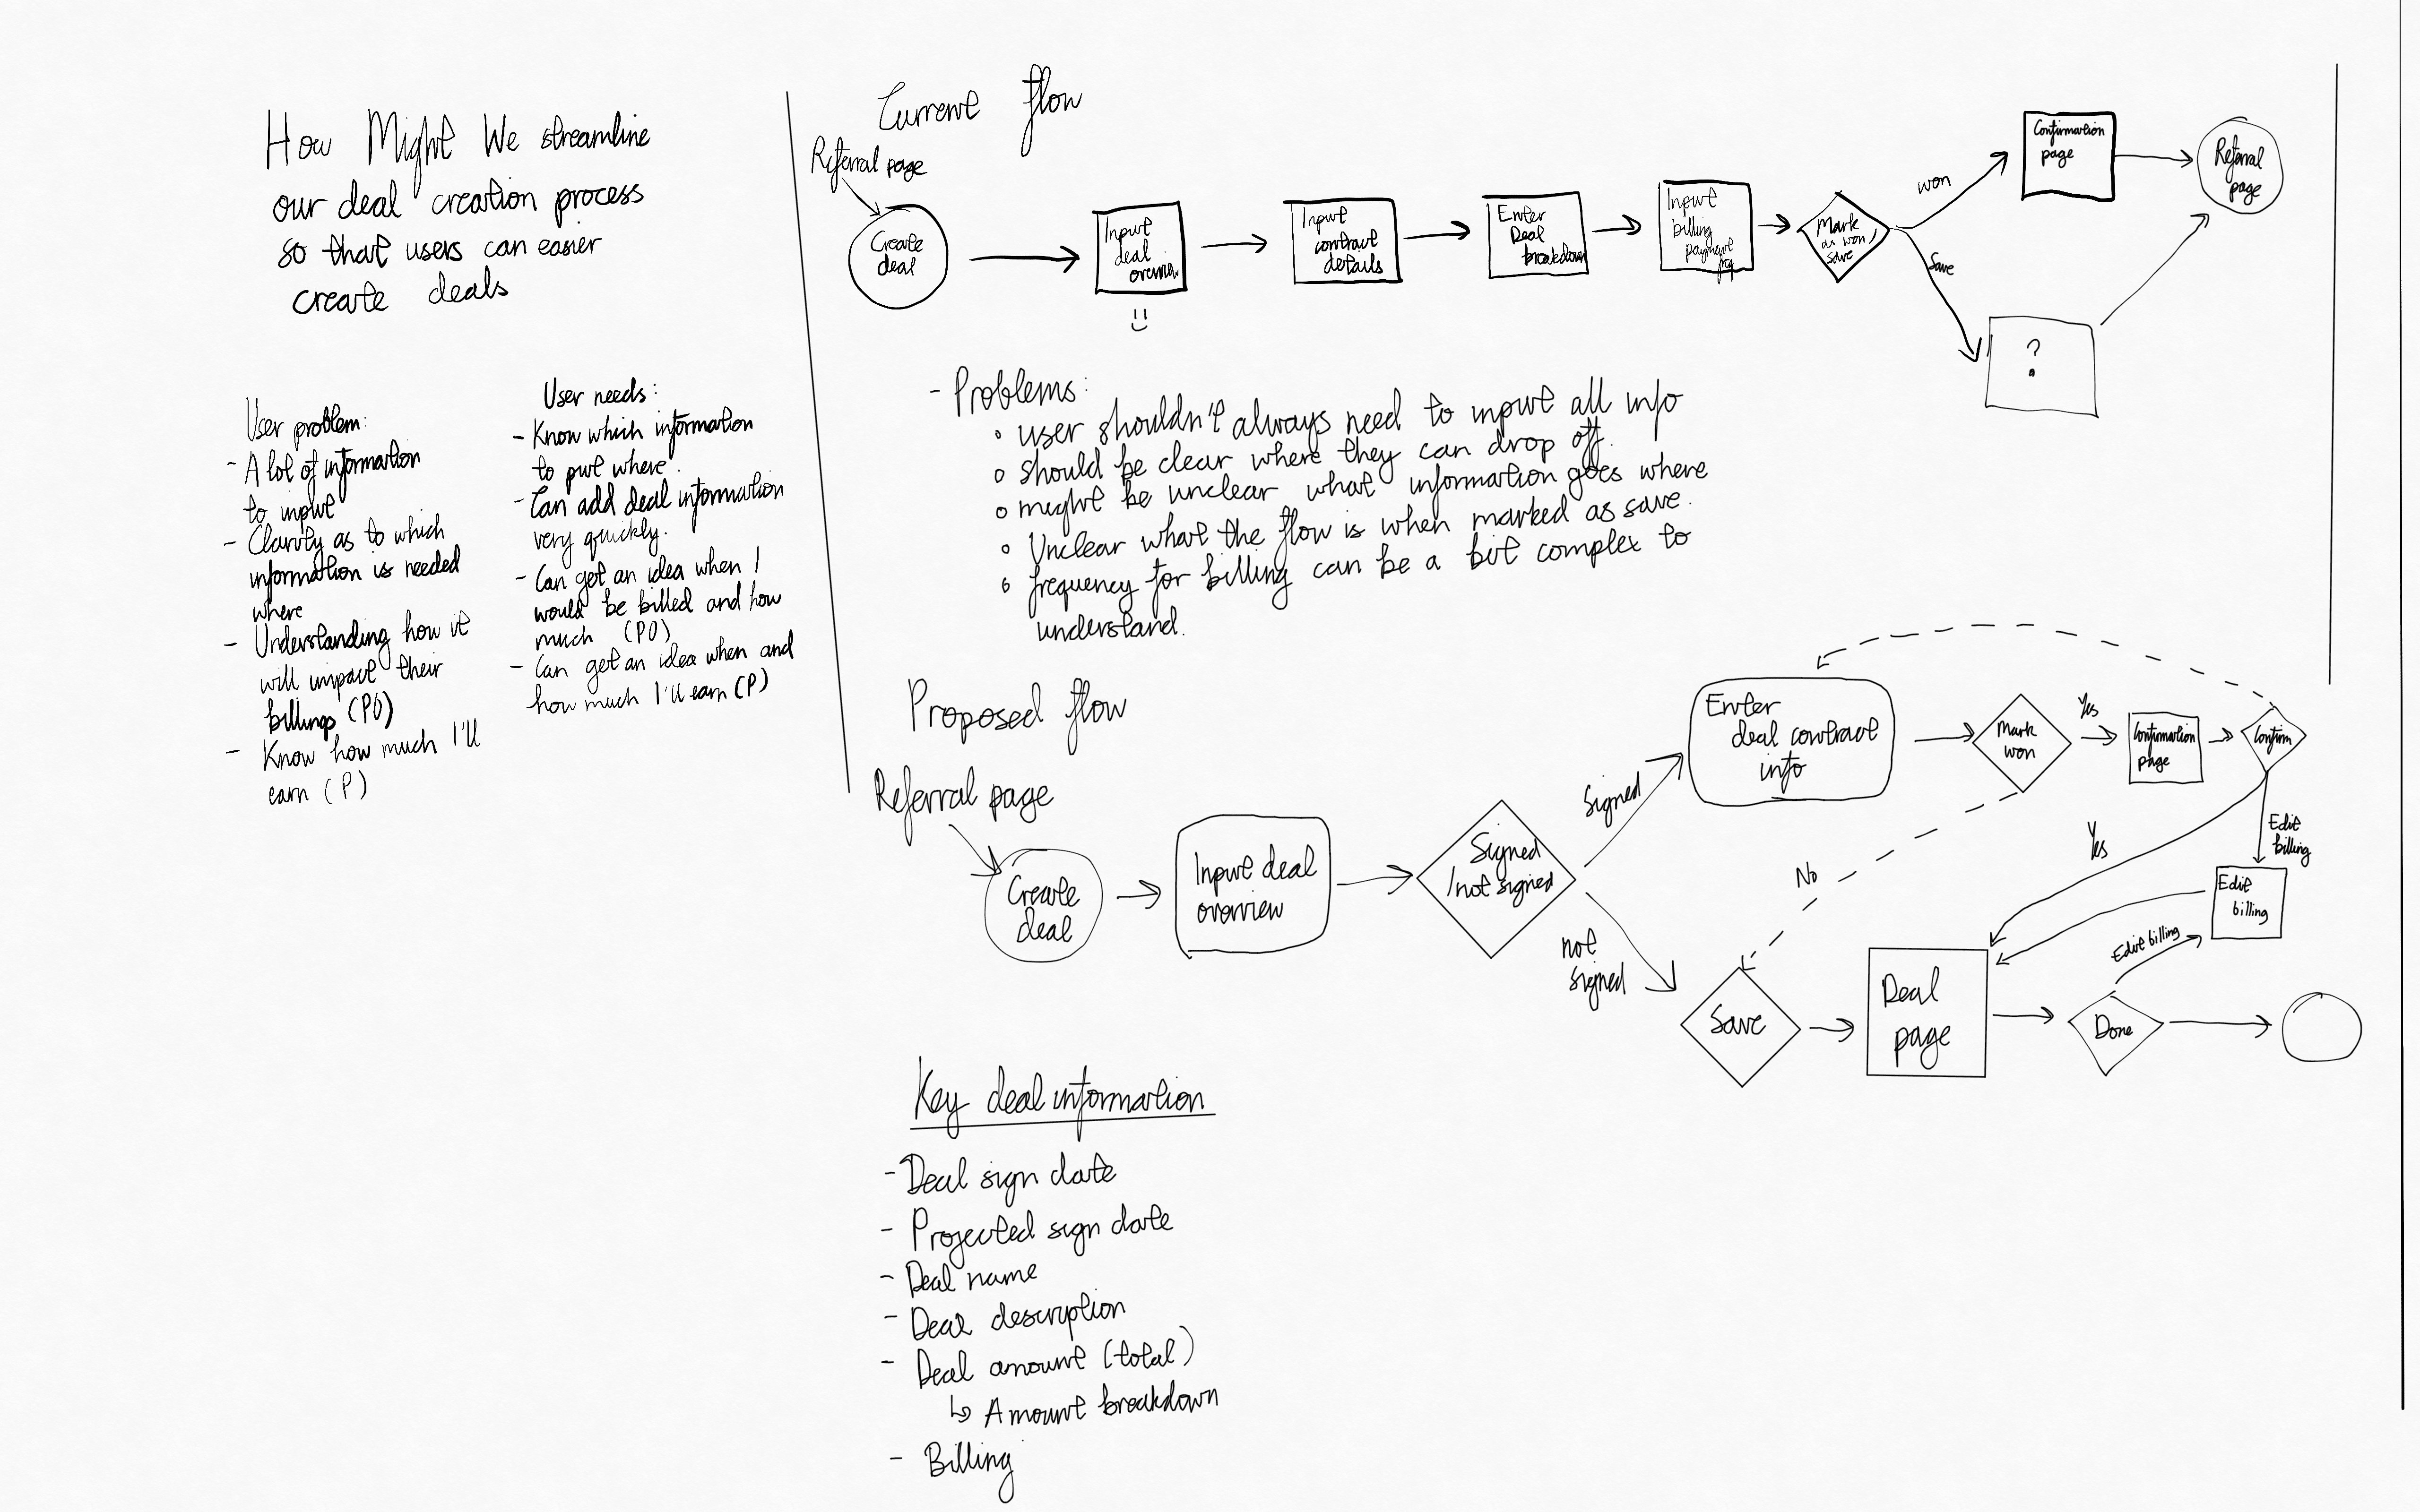 How Might We streamline
our deal creation process
so that users can easier
create deals
User problem:
- A lot of information
to input
- Clarity as to which
information is needed
where
- Understanding how it
will impact their
billings (PO)
- Know how much I'll
earn (P)
User needs:
- Know which information
to put where.
- Can add deal information
very quickly.
- Can get an idea when I
would be billed and how
much (PO)
- Can get an idea when and
how much I'll earn (P)
Current flow
Referral page
Create
deal
Input
deal
overview
Input
contract
details
Enter
Deal
breakdown
Input
billing
payment
Mark
as won/
save
won
Save
Confirmation
page
Referral
page
?
- Problems:
◦ user shouldn't always need to input all info
◦ should be clear where they can drop off.
◦ might be unclear what information goes where
◦ Unclear what the flow is when marked as save.
◦ frequency for billing can be a bit complex to
understand.
Proposed flow
Referral page
Create
deal
Input deal
overview
Signed
/not signed
Signed
not
signed
Enter
deal contract
info
Mark
won
Yes
Confirmation
page
Confirm
No
Yes
Edit
billing
Edit
billing
Edit billing
Save
Deal
page
Done
Key deal information
- Deal sign date
- Projected sign date
- Deal name
- Deal description
- Deal amount (total)
↳ Amount breakdown
- Billing